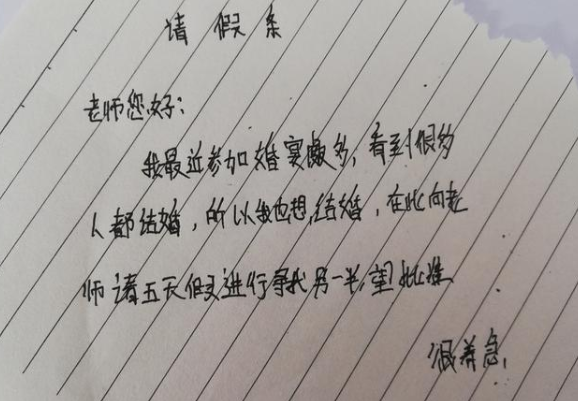 请假条
老师您好:
我最近参加婚宴颇多,看到很多
人都结婚,所以我也想结婚,在此向老
师请五天假来进行寻找另一半,望批准
很着急,